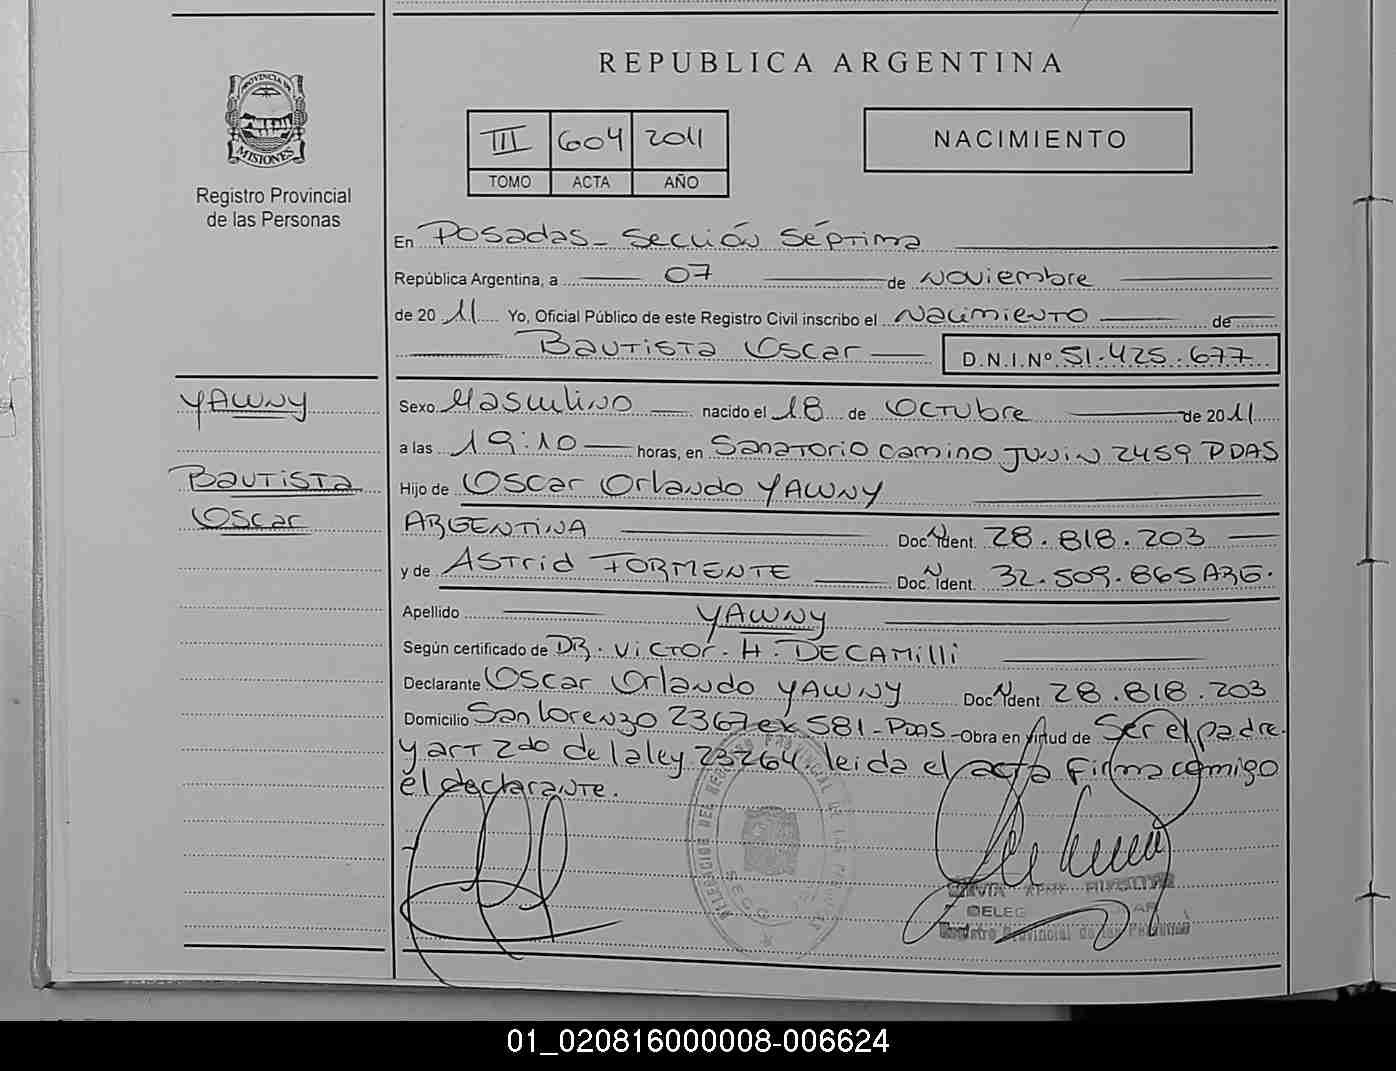 REPUBLICA ARGENTINA
PROVINCIA DE
MISIONES
Registro Provincial
de las Personas
III 604 2011
TOMO ACTA AÑO
NACIMIENTO
En Posadas - Sección Séptima
República Argentina, a 07 de Noviembre
de 2011 Yo, Oficial Público de este Registro Civil inscribo el Nacimiento de
Bautista Oscar D.N.I.Nº 51.425.677
YAWNY
Bautista
Oscar
Sexo Masculino nacido el 18 de Octubre de 2011
a las 19:10 horas, en Sanatorio camino Junin 2459 PDAS
Hijo de Oscar Orlando YAWNY
ARGENTINA Doc. N Ident. 28.818.203
y de Astrid FORMENTE Doc. N Ident. 32.509.865 ARG.
Apellido YAWNY
Según certificado de DR. Victor. H. DECAMilli
Declarante Oscar Orlando YAWNY Doc. N Ident 28.818.203
Domicilio San Lorenzo 2367 ex 581 - PDAS - Obra en virtud de Ser el padre.
y art 2do de la ley 23264. leida el acta firma comigo
él declarante.
Registro Provincial de las Personas
01_020816000008-006624